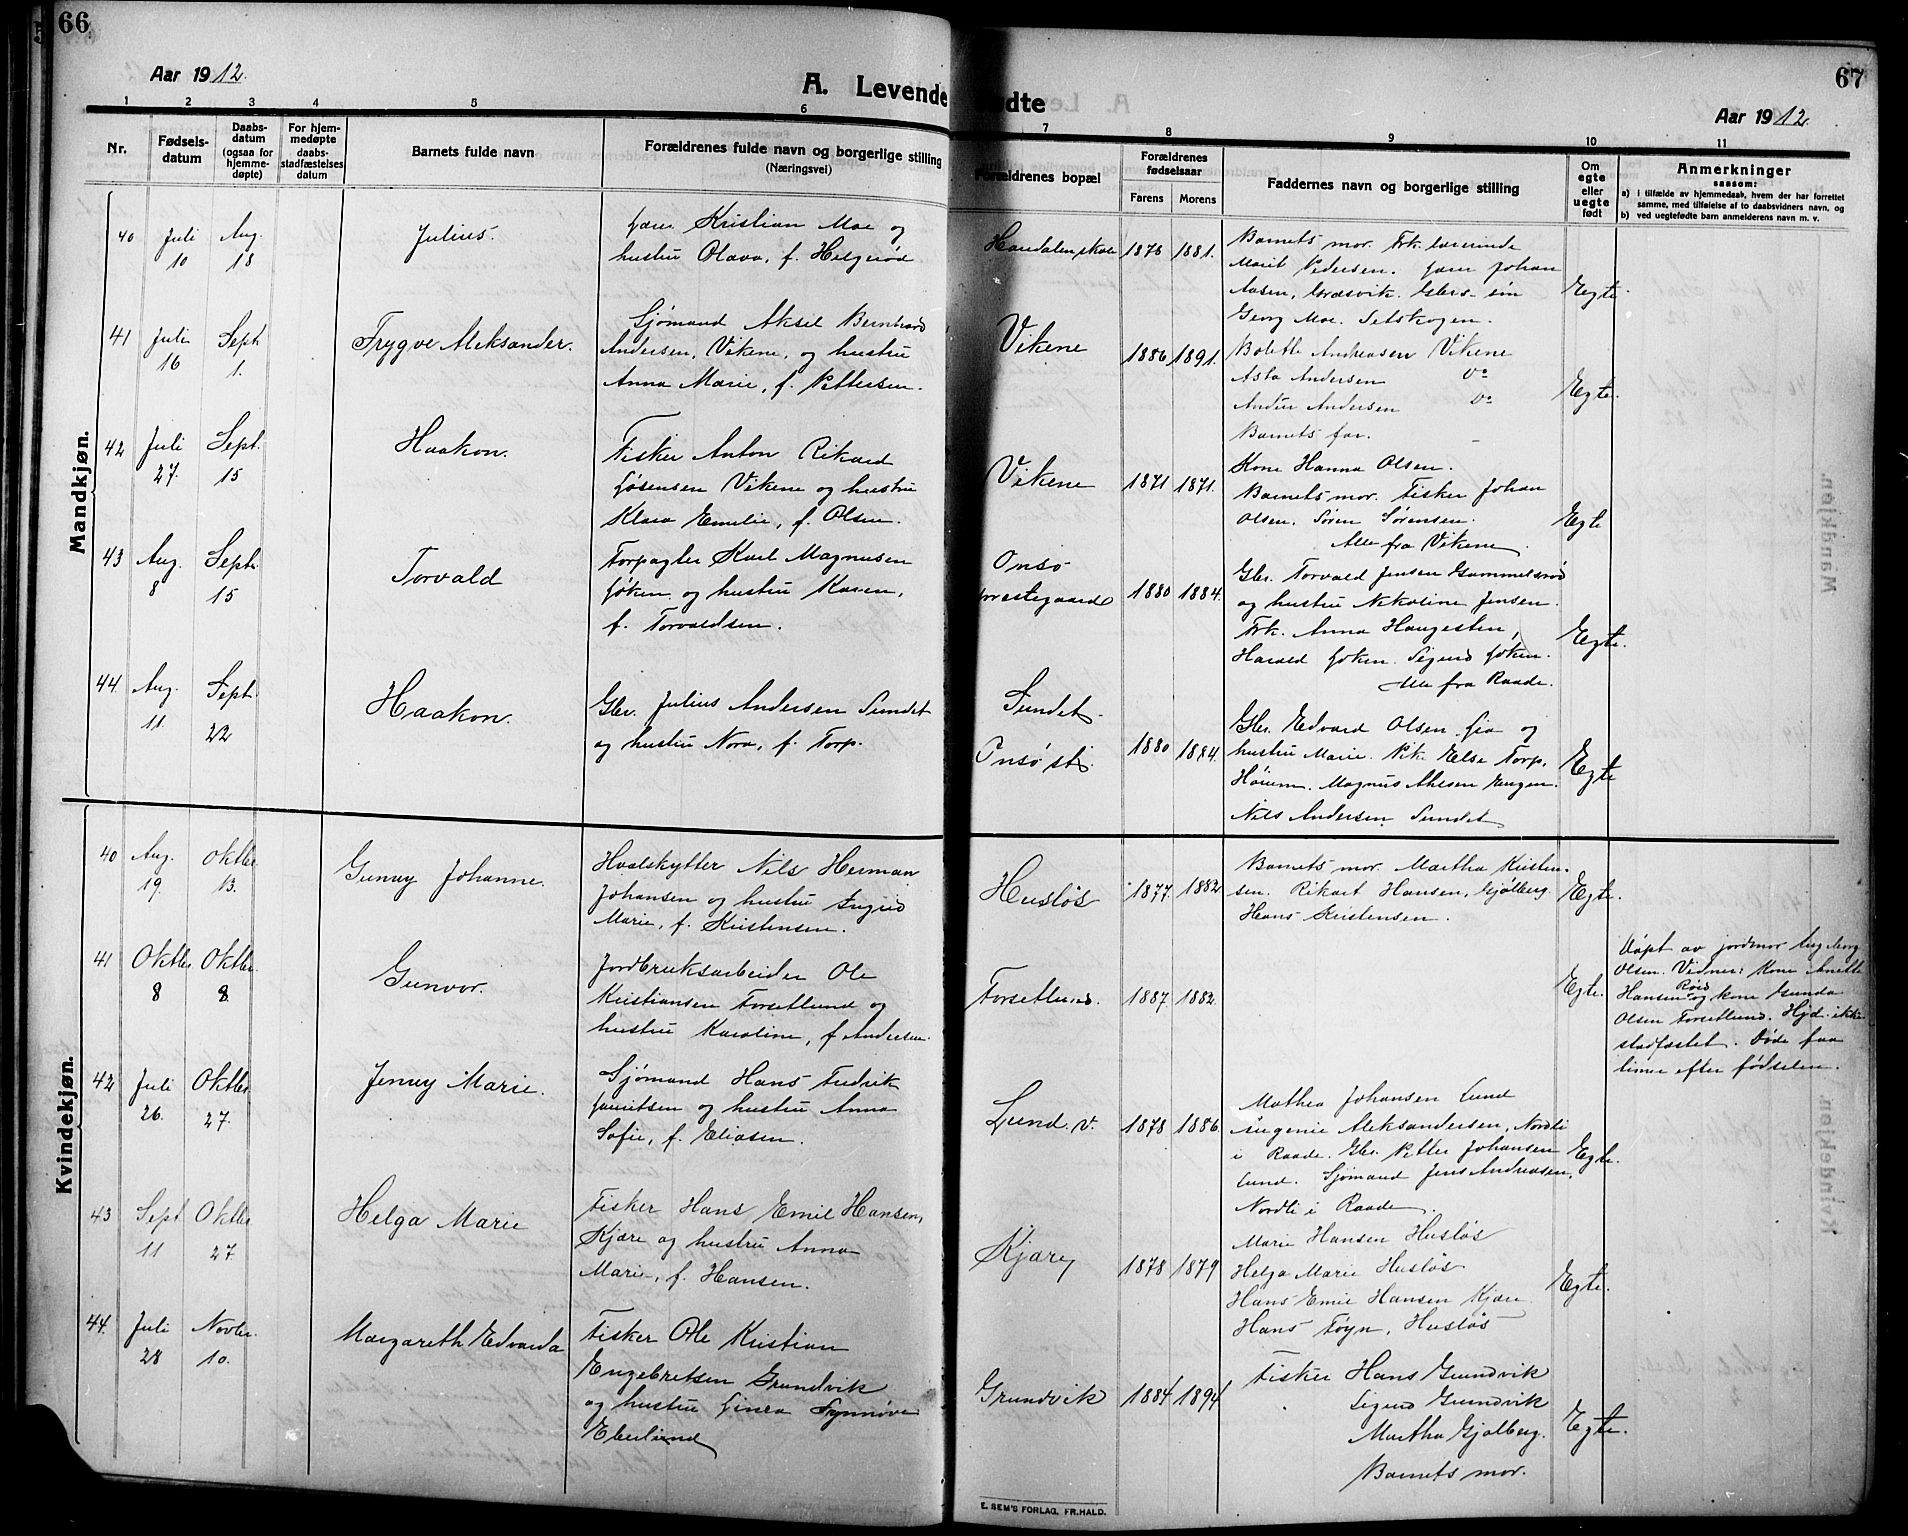 66
Aar 1912.
A. Levende
1 2 3 4 5 6
Nr.
Fødsels-
datum
Daabs-
datum
(ogsaa for
hjemme-
døpte)
For hjem-
medøpte
daabs-
stadfæstelses
datum
Barnets fulde navn
Forældrenes fulde navn og borgerlige stilling
(Næringsvei)
Mandkjøn.
40 Juli Aug. Julius. Kristian Moe og
10 18 hustru Olava, f. Helgerød
41 Juli Sept. Trygve Aleksander. Sjømand Aksel Bernhard
16 1. Andersen, Vikene, og hustru
Anna Marie, f. Pettersen.
42 Juli Sept. Haakon. Fisker Anton Rikard
27. 15 Vikene og hustru
Klara Emelie, f. Olsen.
43 Aug. Sept. Torvald Forpagter Karl Magnusen
8 15 og hustru Karen,
f. Torvaldsen.
44. Aug. Sept. Haakon. Gbr. Julius Andersen Sundet
11. 22 og hustru Nora, f. Torp.
Kvindekjøn.
40 Aug. Oktbr. Gunny Johanne. Hvalskytter Nils Herman
19. 13. Johansen og hustru Ingrid
Marie, f. Kristensen.
41 Oktbr. Oktbr. Gunvor. Jordbruksarbeider Ole
8 8. Kristiansen Forsetlund og
hustru Karoline, f Andersen.
42 Juli Oktbr. Jenny Marie. Sjømand Hans Fredrik
26. 27. og hustru Anna
Sofie, f. Eliasen.
43 Sept. Oktbr. Helga Marie Fisker Hans Emil Hansen,
11 27 Kjære og hustru Anna
Marie, f. Hansen.
44. Juli Novbr. Margareth Edvarda Fisker Ole Kristian
28 10. Engebretsen Grundvik
og hustru Synnøve
67
ødte
Aar 1912.
7 8 9 10 11
Forældrenes bopæl
Forældrenes
fødselsaar
Farens Morens
Faddernes navn og borgerlige stilling
Om
egte
eller
uegte
født
Anmerkninger
saasom:
a) i tilfælde av hjemmedaab, hvem der har forrettet
samme, med tilføielse af to daabsvidners navn, og
b) ved uegtefødte barn anmelderens navn m. v.
1876 1881. Barnets mor. Frk. lærerinde
Marit Pedersen. Johan
Aasen, Egte.
Georg Moe.
Vikene 1886 1891. Bolette Andreasen Vikene
Asta Andersen Do
Andersen Do Egte.
Barnets far.
Vikene 1871 1871. Kone Hanna Olsen.
Barnets mor. Fisker Johan
Olsen. Søren Sørensen. Egte
Alle fra Vikene.
Onsø
prestegaard 1880 1884. Gbr. Torvald Jensen Gammelsrød
og hustru Nikoline Jensen.
Frk. Anna Haugesten, Egte.
Harald
Alle fra Raade.
Sundet.
Onsø st. 1880 1884. Gbr. Edvard Olsen og
hustru Marie. Pike Else Torp, Egte
Magnus
Nils Andersen Sundet
Husløs 1877. 1882 Barnets mor. Martha Kristen-
sen. Rikart Hansen, Gjølberg. Egte.
Hans Kristensen.
Forsetlund. 1887. 1882. Egte. Døpt av jordmor
Olsen. Vidner: Kone Anette
Hansen Rød og kone Gunda
Olsen Forsetlund. Hjd. ikke
stadfæstet. Døde faa
timer efter fødselen.
Lund. v. 1878 1886. Mathea Johansen Lund
Eugenie Aleksandersen, Nordli
i Raade. Gbr. Petter Johansen Egte.
Lund. Sjømand Jens Andreasen,
Nordli i Raade.
Kjære 1878 1879 Marie Hansen Husløs
Helga Marie Husløs
Hans Emil Hansen Kjære Egte.
Hans Føyn, Husløs
Grundvik 1884 1894 Fisker Hans Grundvik
Sigurd Grundvik
Martha Gjølberg. Egte.
Barnets mor.
E. SEM'S FORLAG, FR.HALD.